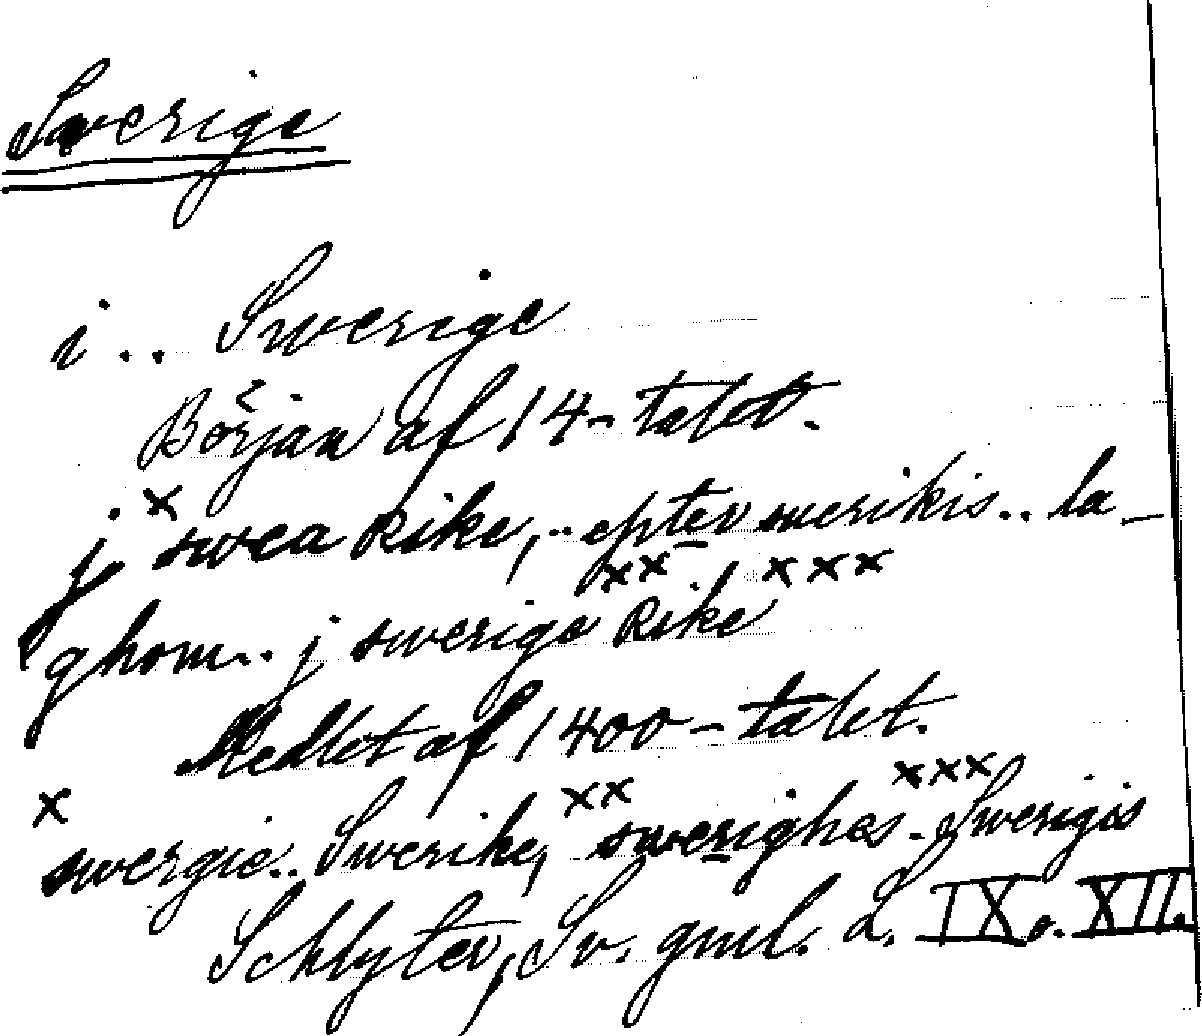 Sverige
i .. Swerige
Början af 14-talet.
j x swea Rike, .. epter swerikis .. la-
xx xxx
ghom .. j swerige Rike
Medlet af 1400-talet.
x xx xxx
swergie .. Swerike, swerighes - Swerigis
Schlyter, Sv. gml. L. IX o. XII.